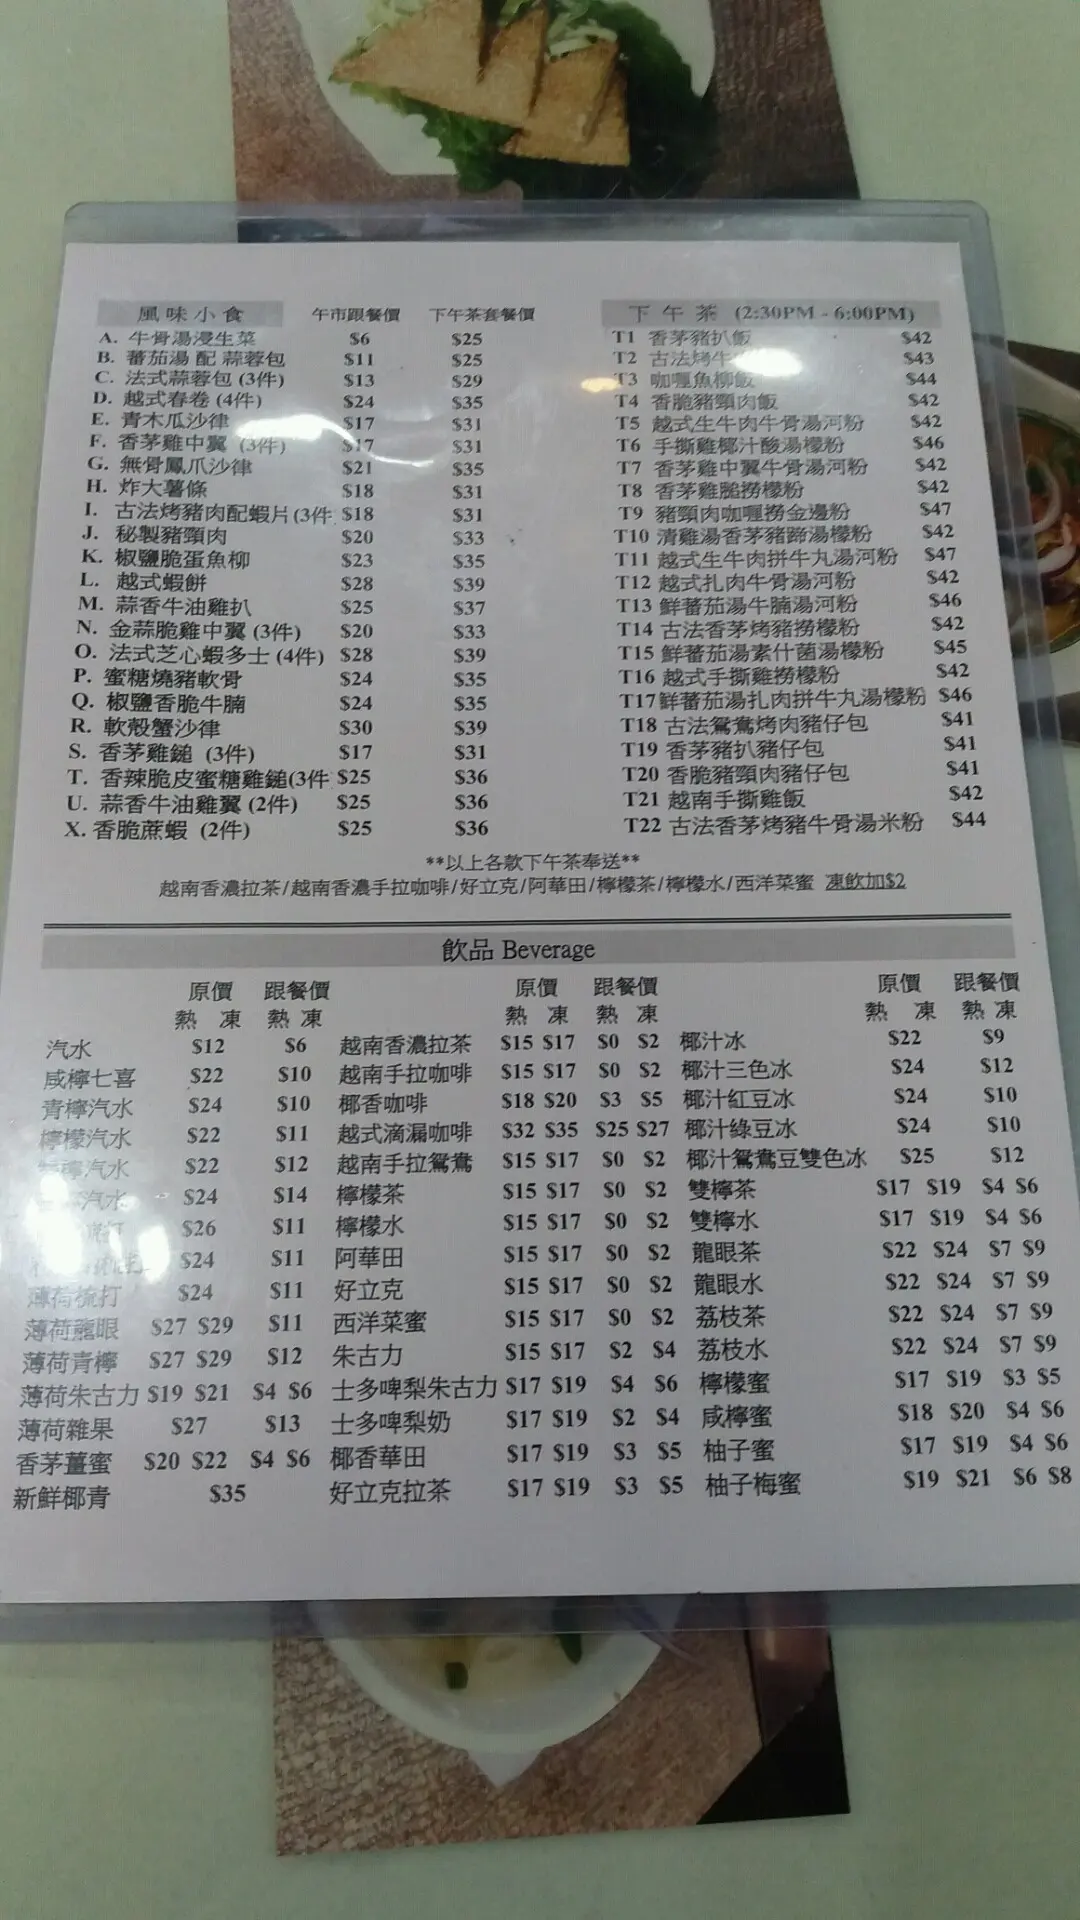 風味小食 午市跟餐價 下午茶套餐價
A. 牛骨湯浸生菜 $6 $25
B. 蕃茄湯 配 蒜蓉包 $11 $25
C. 法式蒜蓉包 (3件) $13 $29
D. 越式春卷 (4件) $24 $35
E. 青木瓜沙律 $17 $31
F. 香茅雞中翼 (3件) $17 $31
G. 無骨鳳爪沙律 $21 $35
H. 炸大薯條 $18 $31
I. 古法烤豬肉配蝦片(3件 $18 $31
J. 秘製豬頸肉 $20 $33
K. 椒鹽脆蛋魚柳 $23 $35
L. 越式蝦餅 $28 $39
M. 蒜香牛油雞扒 $25 $37
N. 金蒜脆雞中翼 (3件) $20 $33
O. 法式芝心蝦多士 (4件) $28 $39
P. 蜜糖燒豬軟骨 $24 $35
Q. 椒鹽香脆牛腩 $24 $35
R. 軟殼蟹沙律 $30 $39
S. 香茅雞鎚 (3件) $17 $31
T. 香辣脆皮蜜糖雞鎚(3件 $25 $36
U. 蒜香牛油雞翼 (2件) $25 $36
X. 香脆蔗蝦 (2件) $25 $36
下午茶 (2:30PM - 6:00PM)
T1 香茅豬扒飯 $42
T2 古法烤牛 $43
T3 咖喱魚柳飯 $44
T4 香脆豬頸肉飯 $42
T5 越式生牛肉牛骨湯河粉 $42
T6 手撕雞椰汁酸湯檬粉 $46
T7 香茅雞中翼牛骨湯河粉 $42
T8 香茅雞髄撈檬粉 $42
T9 豬頸肉咖喱撈金邊粉 $47
T10 清雞湯香茅豬蹄湯檬粉 $42
T11 越式生牛肉拼牛丸湯河粉 $47
T12 越式扎肉牛骨湯河粉 $42
T13 鮮蕃茄湯牛腩湯河粉 $46
T14 古法香茅烤豬撈檬粉 $42
T15 鮮蕃茄湯素什菌湯檬粉 $45
T16 越式手撕雞撈檬粉 $42
T17 鮮蕃茄湯扎肉拼牛丸湯檬粉 $46
T18 古法鴛鴦烤肉豬仔包 $41
T19 香茅豬扒豬仔包 $41
T20 香脆豬頸肉豬仔包 $41
T21 越南手撕雞飯 $42
T22 古法香茅烤豬牛骨湯米粉 $44
**以上各款下午茶奉送**
越南香濃拉茶/越南香濃手拉咖啡/好立克/阿華田/檸檬茶/檸檬水/西洋菜蜜 凍飲加$2
飲品 Beverage
原價 跟餐價
熱 凍 熱 凍
汽水 $12 $6
咸檸七喜 $22 $10
青檸汽水 $24 $10
檸檬汽水 $22 $11
檸汽水 $22 $12
汽水 $24 $14
$26 $11
$24 $11
薄荷梳打 $24 $11
薄荷龍眼 $27 $29 $11
薄荷青檸 $27 $29 $12
薄荷朱古力 $19 $21 $4 $6
薄荷雜果 $27 $13
香茅薑蜜 $20 $22 $4 $6
新鮮椰青 $35
原價 跟餐價
熱 凍 熱 凍
越南香濃拉茶 $15 $17 $0 $2
越南手拉咖啡 $15 $17 $0 $2
椰香咖啡 $18 $20 $3 $5
越式滴漏咖啡 $32 $35 $25 $27
越南手拉鴛鴦 $15 $17 $0 $2
檸檬茶 $15 $17 $0 $2
檸檬水 $15 $17 $0 $2
阿華田 $15 $17 $0 $2
好立克 $15 $17 $0 $2
西洋菜蜜 $15 $17 $0 $2
朱古力 $15 $17 $2 $4
士多啤梨朱古力 $17 $19 $4 $6
士多啤梨奶 $17 $19 $2 $4
椰香華田 $17 $19 $3 $5
好立克拉茶 $17 $19 $3 $5
原價 跟餐價
熱 凍 熱 凍
椰汁冰 $22 $9
椰汁三色冰 $24 $12
椰汁紅豆冰 $24 $10
椰汁綠豆冰 $24 $10
椰汁鴛鴦豆雙色冰 $25 $12
雙檸茶 $17 $19 $4 $6
雙檸水 $17 $19 $4 $6
龍眼茶 $22 $24 $7 $9
龍眼水 $22 $24 $7 $9
荔枝茶 $22 $24 $7 $9
荔枝水 $22 $24 $7 $9
檸檬蜜 $17 $19 $3 $5
咸檸蜜 $18 $20 $4 $6
柚子蜜 $17 $19 $4 $6
柚子梅蜜 $19 $21 $6 $8